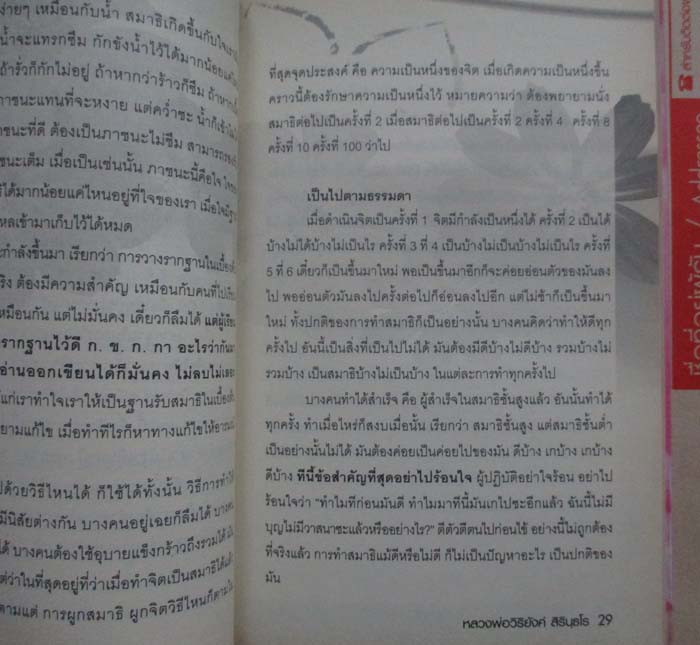 ง่ายๆ เหมือนกับน้ำ สมาธิเกิดขึ้นกับใจเรา
น้ำจะแทรกซึม กักขังน้ำไว้ได้มากน้อยแค่
ถ้ารั่วก็กักไม่อยู่ ถ้าหากว่าร้าวก็ซึม
ภาชนะแทนที่จะหงาย แต่คว่ำซะ น้ำก็เข้า
ชนะที่ดี ต้องเป็นภาชนะไม่ซึม สามารถรอง
ชนะเต็ม เมื่อเป็นเช่นนั้น ภาชนะนี้คือใจ
ได้มากน้อยแค่ไหนอยู่ที่ใจของเรา เมื่อใจ
หลเข้ามาเก็บไว้ได้หมด
ะกำลังขึ้นมา เรียกว่า การวางรากฐานในเบื้องต้น
ริง ต้องมีความสำคัญ เหมือนกับคนที่ไป
หมือนกัน แต่ไม่มั่นคง เดี๋ยวก็ลืมได้ แต่ผู้
รากฐานไว้ดี ก. ข. ก. กา อะไรว่ากันมา
อ่านออกเขียนได้ก็มั่นคง ไม่ลบไม่เลือน
แก่เราทำใจเราให้เป็นฐานรับสมาธิในเบื้องต้น
ยามแก้ไข เมื่อทำทีไรก็หาทางแก้ไขให้
ปด้วยวิธีไหนได้ ก็ใช้ได้ทั้งนั้น วิธีการ
มีนิสัยต่างกัน บางคนอยู่เฉยก็ลืมได้ บาง
ได้ บางคนต้องใช้อุบายแข็งกร้าวถึงรวมได้
ต่ว่าในที่สุดอยู่ที่ว่าเมื่อทำจิตเป็นสมาธิได้แล้ว
ตามแต่ การผูกสมาธิ ผูกจิตวิธีไหนก็ตาม
ที่สุดจุดประสงค์ คือ ความเป็นหนึ่งของจิต เมื่อเกิดความเป็นหนึ่งขึ้น
คราวนี้ต้องรักษาความเป็นหนึ่งไว้ หมายความว่า ต้องพยายามนั่ง
สมาธิต่อไปเป็นครั้งที่ 2 เมื่อสมาธิต่อไปเป็นครั้งที่ 2 ครั้งที่ 4 ครั้งที่ 8
ครั้งที่ 10 ครั้งที่ 100 ว่าไป
เป็นไปตามธรรมดา
เมื่อดำเนินจิตเป็นครั้งที่ 1 จิตมีกำลังเป็นหนึ่งได้ ครั้งที่ 2 เป็นได้
บ้างไม่ได้บ้างไม่เป็นไร ครั้งที่ 3 ที่ 4 เป็นบ้างไม่เป็นบ้างไม่เป็นไร ครั้งที่
5 ที่ 6 เดี๋ยวก็เป็นขึ้นมาใหม่ พอเป็นขึ้นมาอีกก็จะค่อยอ่อนตัวของมันลง
ไป พออ่อนตัวมันลงไปครั้งต่อไปก็อ่อนลงไปอีก แต่ไม่ช้าก็เป็นขึ้นมา
ใหม่ ทั้งปกติของการทำสมาธิก็เป็นอย่างนั้น บางคนคิดว่าทำให้ดีทุก
ครั้งไป อันนี้เป็นสิ่งที่เป็นไปไม่ได้ มันต้องมีดีบ้างไม่ดีบ้าง รวมบ้างไม่
รวมบ้าง เป็นสมาธิบ้างไม่เป็นบ้าง ในแต่ละการทำทุกครั้งไป
บางคนทำได้สำเร็จ คือ ผู้สำเร็จในสมาธิชั้นสูงแล้ว อันนั้นทำได้
ทุกครั้ง ทำเมื่อไหร่ก็สงบเมื่อนั้น เรียกว่า สมาธิชั้นสูง แต่สมาธิชั้นต่ำ
เป็นอย่างนั้นไม่ได้ มันต้องค่อยเป็นค่อยไปของมัน ดีบ้าง เกบ้าง เกบ้าง
ดีบ้าง ทีนี้ข้อสำคัญที่สุดอย่าไปร้อนใจ ผู้ปฏิบัติอย่าใจร้อน อย่าไป
ร้อนใจว่า “ทำไมทีก่อนมันดี ทำไมมาทีนี้มันเกไปซะอีกแล้ว อันนี้ไม่มี
บุญไม่มีวาสนาซะแล้วหรืออย่างไร?” ตีตัวตีตนไปก่อนไข้ อย่างนี้ไม่ถูกต้อง
ที่จริงแล้ว การทำสมาธิแม้ดีหรือไม่ดี ก็ไม่เป็นปัญหาอะไร เป็นปกติของ
มัน
หลวงพ่อวิริยังค์ สิรินฺธโร 29